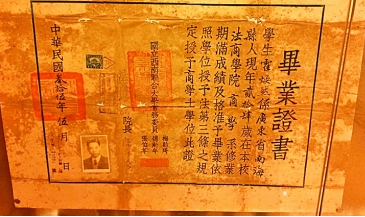 畢業證書
學生
係廣東省南海
縣人現年貳拾肆歲在本校
法商學院商學系修業
期滿成績及格准予畢業依
照學位授予法第三條之規
定授予商學士學位此證
國立西南聯合大學常務委員
梅貽琦
傅斯年
張伯苓
院長
中華民國叁拾伍年伍月 日